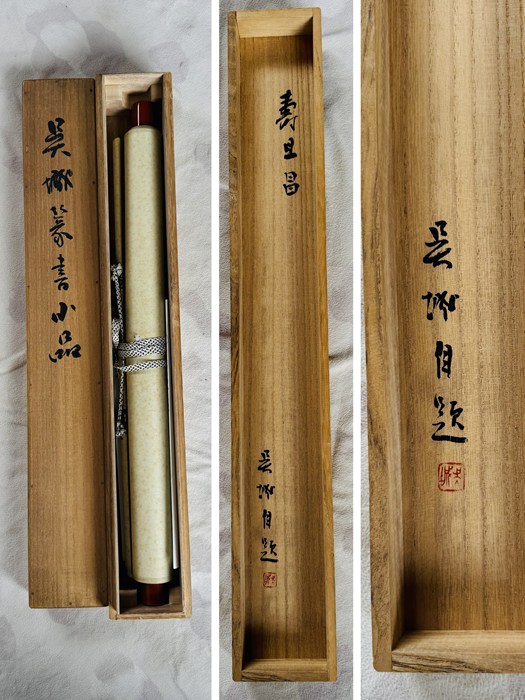 吳城篆書小品
壽且昌
吳城自題
吳城自題